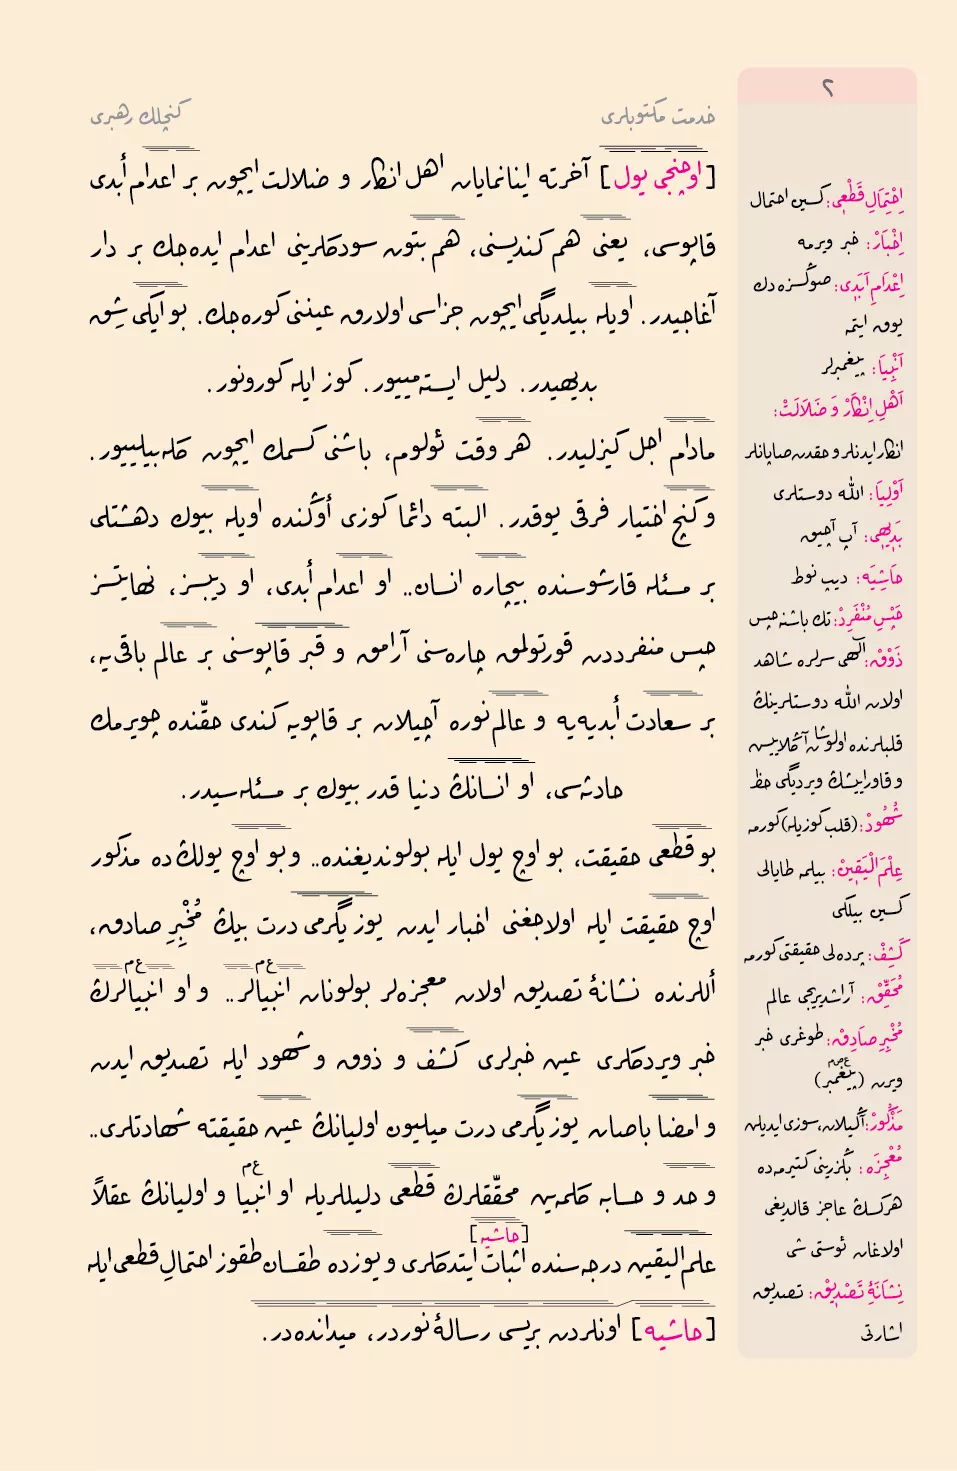 ٢
خدمت مكتوبلرى
كنچلك رهبرى
[اوچنجى يول] آخرته اينانمايان اهل انكار و ضلالت ايچون بر اعدام أبدى
قاپوسى، يعنى هم كنديسنى، هم بتون سودكلرينى اعدام ايده‌جك بر دار
آغاجيدر. اويله بيلديگى ايچون جزاسى اولارق عيننى كوره‌جك. بو ايكى شِق
بديهيدر. دليل ايسته‌مييور. كوز ايله كورونور.
مادام اجل كيزليدر. هر وقت ئولوم، باشنى كسمك ايچون كله‌بيلييور.
و كنچ اختيار فرقى يوقدر. البته دائما كوزى أوڭنده اويله بيوك دهشتلى
بر مسئله قارشوسنده بيچاره انسان.. او اعدام أبدى، او ديبسز، نهايتسز
حبس منفرددن قورتولمق چاره‌سنى آرامق و قبر قاپوسنى بر عالم باقى‌يه،
بر سعادت أبديه‌يه و عالم نوره آچيلان بر قاپويه كندى حقّنده چويرمك
حادثه‌سى، او انسانڭ دنيا قدر بيوك بر مسئله‌سيدر.
بو قطعى حقيقت، بو اوچ يول ايله بولونديغنده.. و بو اوچ يولڭ ده مذكور
اوچ حقيقت ايله اولاجغنى اخبار ايدن يوز يگرمى درت بيڭ مُخْبِرِ صادق،
أللرنده نشانهٔ تصديق اولان معجزه‌لر بولونان انبيالر.. و او انبيالرڭ
خبر ويردكلرى عين خبرلرى كشف و ذوق و شهود ايله تصديق ايدن
و امضا باصان يوز يگرمى درت ميليون اوليانڭ عين حقيقته شهادتلرى..
و حد و حسابه كلمه‌ين محقّقلرڭ قطعى دليللريله او انبيا و اوليانڭ عقلاً
علم اليقين درجه‌سنده اثبات ايتدكلرى [حاشيه] و يوزده طقسان طقوز احتمالِ قطعى ايله
[حاشيه] اونلردن بريسى رسالهٔ نوردر، ميدانده‌در.
اِحْتِمَالِ قَطْعِى: كسين احتمال
اِخْبَارْ: خبر ويرمه
اِعْدَامِ اَبَدِى: صوڭسزه دك
يوق ايتمه
اَنْبِيَا: پيغمبرلر
اَهْلِ اِنْكَارْ وَ ضَلَالَتْ:
انكار ايدنلر و حقدن صاپانلر
اَوْلِيَا: الله دوستلرى
بَدِيهِى: آپ آچيق
حَاشِيَه: ديپ نوط
حَبْسِ مُنْفَرِدْ: تك باشنه حبس
ذَوْقْ: آلٰهى سرلره شاهد
اولان الله دوستلرينڭ
قلبلرنده اولوشان آڭلاييس
و قاورايشڭ ويرديگى حظ
شُهُودْ: (قلب كوزيله) كورمه
عِلْمَ الْيَقِينْ: بيلمه طايالى
كسين بيلگى
كَشِفْ: پرده‌لى حقيقتى كورمه
مُحَقِّقْ: آراشديريجى عالم
مُخْبِرِ صَادِقْ: طوغرى خبر
ويرن (پيغمبر)
مَذْكُورْ: آڭيلان، سوزى ايديلن
مُعْجِزَه: بڭزرينى كتيرمه‌ده
هركسڭ عاجز قالديغى
اولاغان ئوستى شى
نِشَانَهٔ تَصْدِيقْ: تصديق
اشارتى